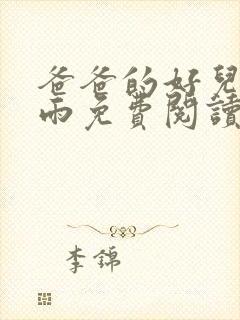 爸爸的好兒
雨免費閱讀
李錦